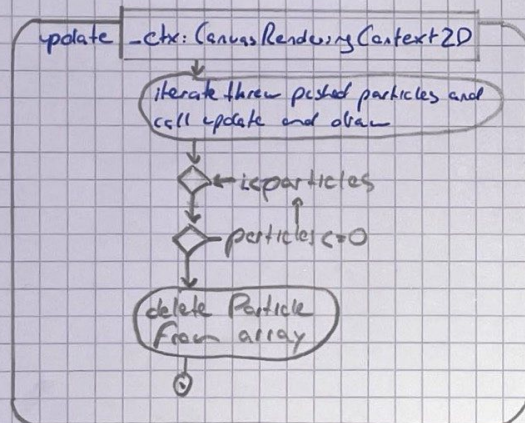 update
_ctx: CanvasRenderingContext2D
iterate threw pushed particles and
call update and draw
i<particles
particles<=0
delete Particle
from array